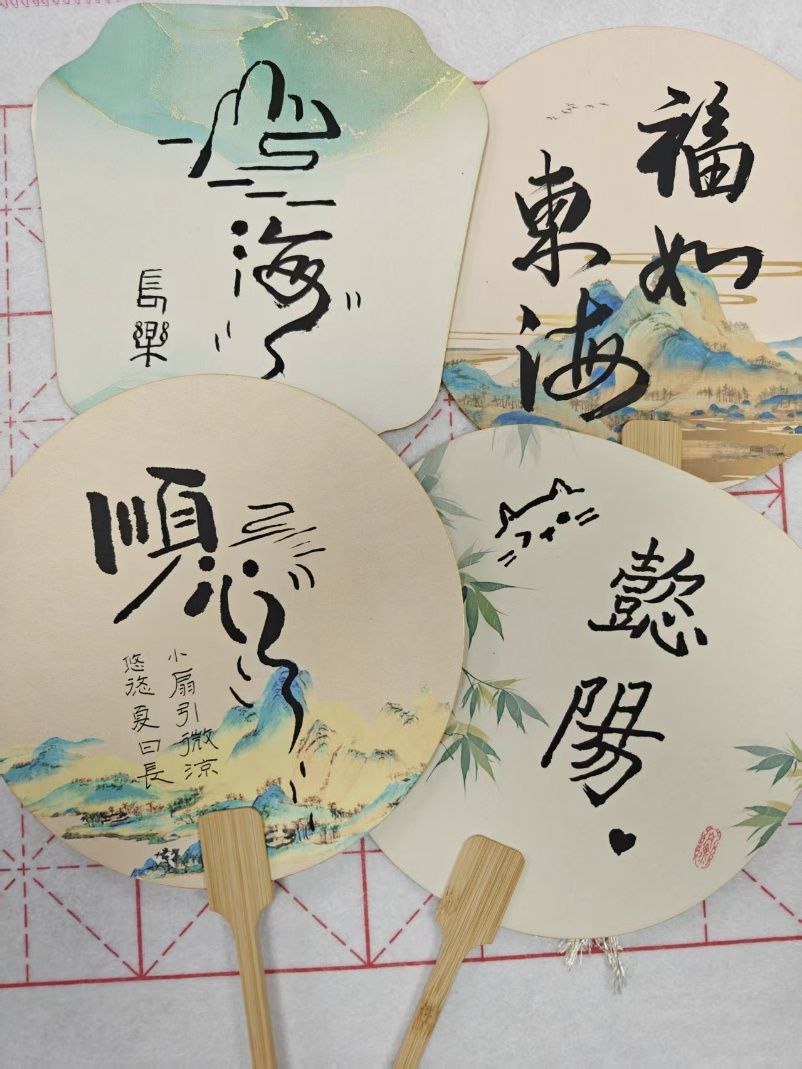 山海
長樂
福如
東海
順心
小扇引微涼
悠悠夏日長
懿陽